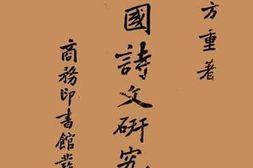 方重著
國詩文研究
商務印書館